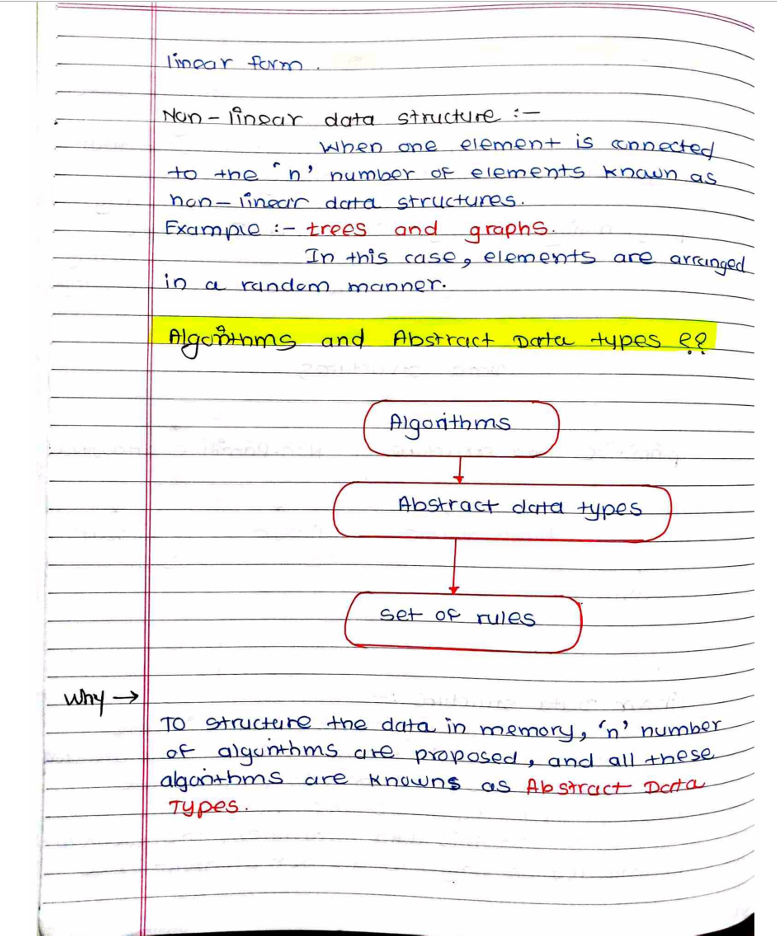 linear form.
Non-linear data structure :-
When one element is connected
to the 'n' number of elements known as
non-linear data structures.
Example :- trees and graphs.
In this case, elements are arranged
in a random manner.
Algorithms and Abstract Data types ??
Algorithms
Abstract data types
set of rules
Why →
To structure the data in memory, 'n' number
of algorithms are proposed, and all these
algorithms are knowns as Abstract Data
Types.